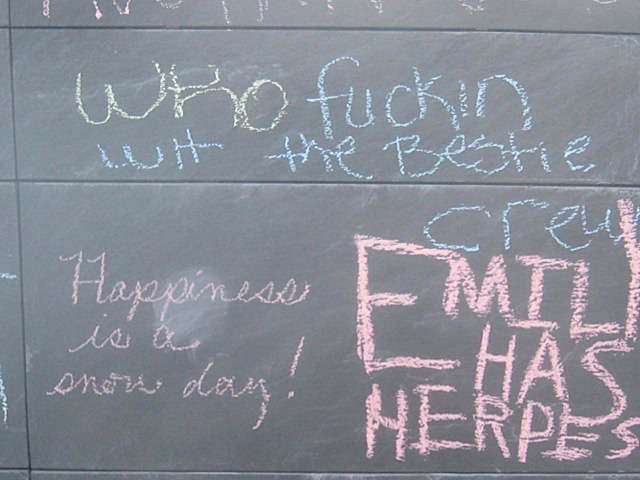 WHO fuckin
wit the Bestie
crew
Happiness
is a
snow day!
EMILY
HAS
HERPES